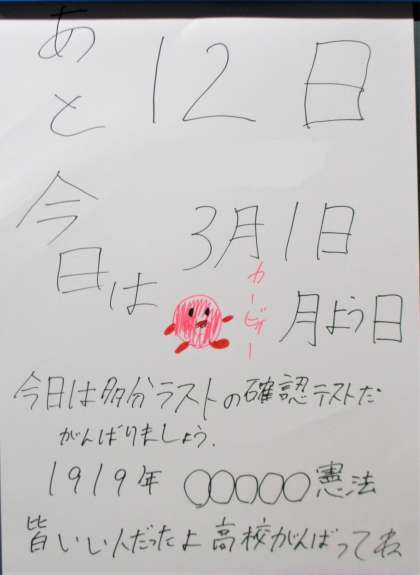 あと 12日
今日は 3月1日
カービィー
月よう日
今日は多分ラストの確認テストだ
がんばりましょう.
1919年 ○○○○○憲法
皆いい人だったよ 高校がんばってね